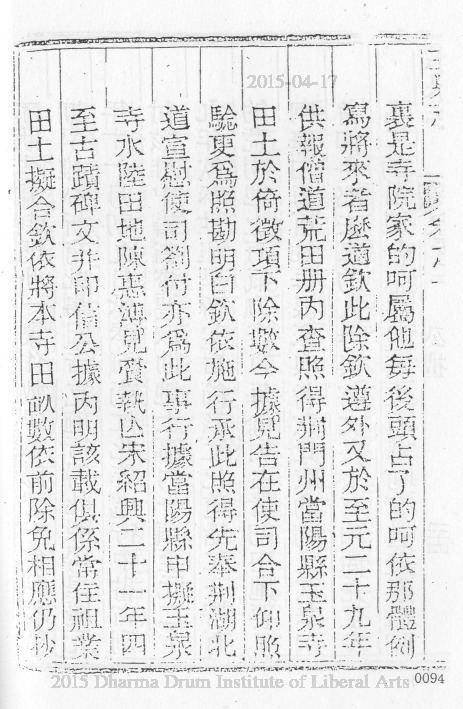 2015-04-17
裏是寺院家的呵屬他每後頭占了的呵依那體例
寫將來者麽道欽此除欽遵外又於至元二十九年
供報僧道荒田册内查照得荆門州當陽縣玉泉寺
田土於倚徵項下除數今據見告在使司合下仰照
驗更爲照勘明白欽依施行承此照得先奉荆湖北
道宣慰使司劄付亦爲此事行據當陽縣申擬玉泉
寺水陸田地陳惠溥見賫執亡宋紹興二十一年四
至古蹟碑文并印信公據内明該載俱係常住祖業
田土擬合欽依將本寺田畝數依前除免相應仍抄
2015 Dharma Drum Institute of Liberal Arts
0094